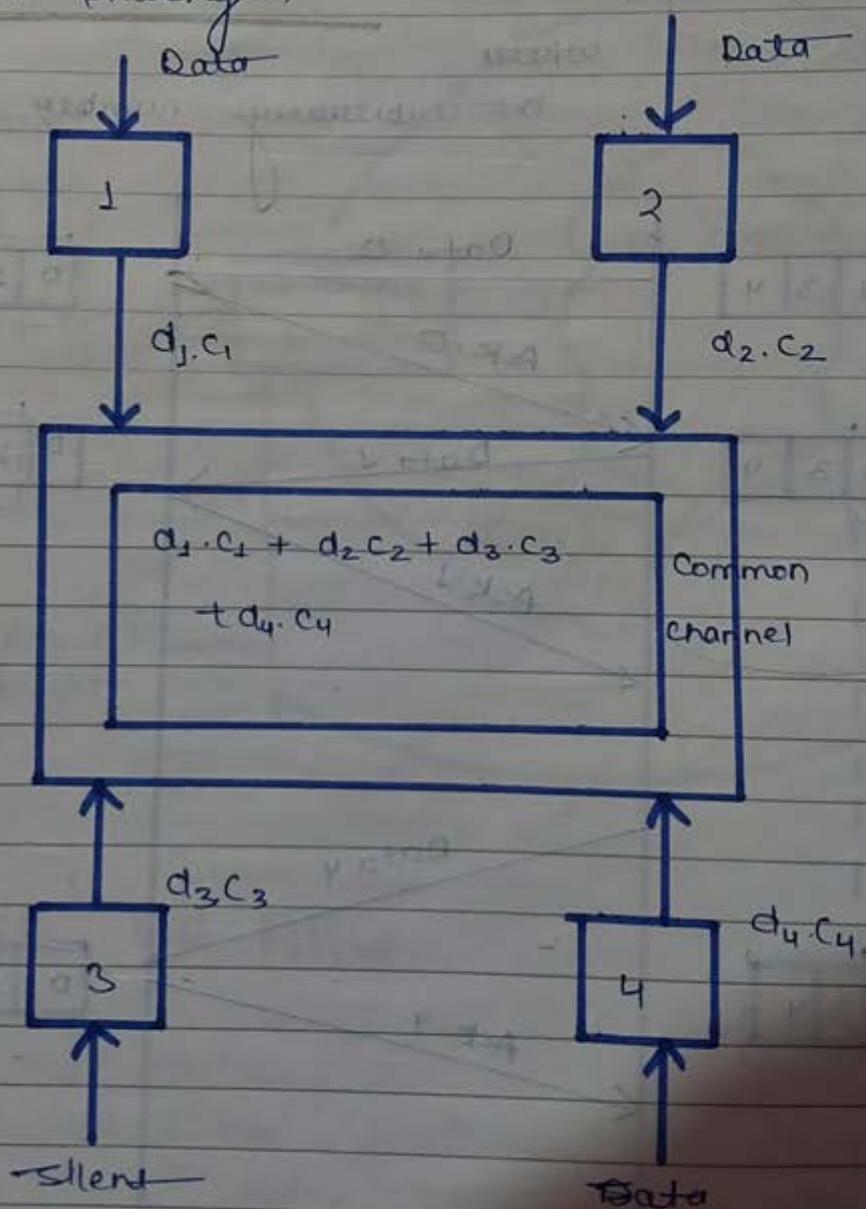 Data
Data
1
2
d1.c1
d2.c2
d1.c1 + d2c2 + d3.c3
+ d4.c4
Common
channel
d3c3
d4.c4.
3
4
Silent
Data